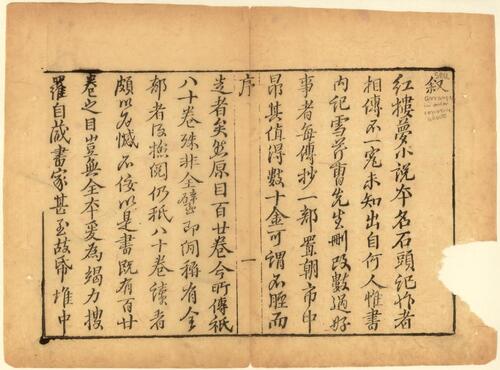 叙
红楼夢小说本名石頭记作者
相傳不一究未知出自何人惟書
内记雪芹曹先生删改数過好
事者每傳抄一部置廟市中
昂其值得数十金可謂不脛而
序
一
走者矣然原目百廿卷今所傳祗
八十卷殊非全璧即间称有全
部者及撿閲仍祇八十卷讀者
頗以為憾不佞以是書既有百廿
卷之目豈無全本爰為竭力搜
羅自蔵書家甚至故帋堆中